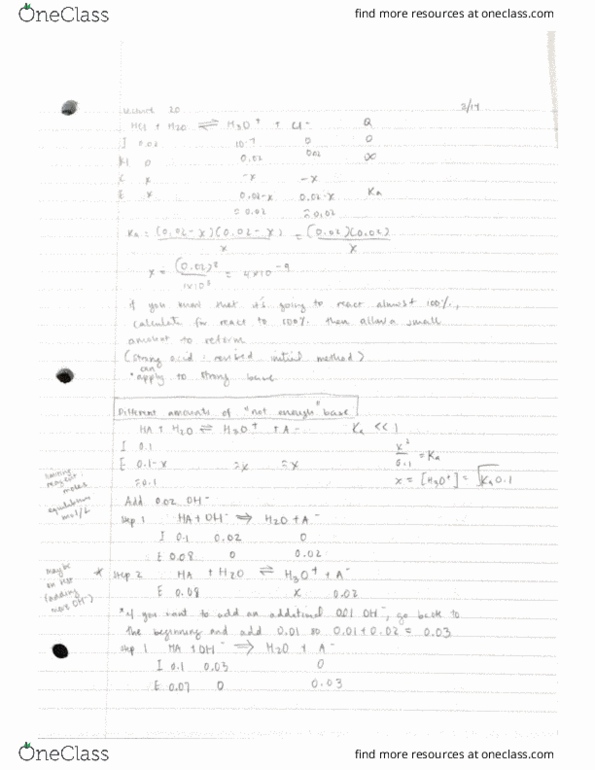 OneClass find more resources at oneclass.com
Lecture 20 3/14
HCl + H2O ⇌ H3O+ + Cl- Q
I 0.02 10^-7 0 0
RI 0 0.02 0.02 ∞
C x -x -x
E x 0.02-x 0.02-x Ka
≈0.02 ≈0.02
Ka = (0.02-x)(0.02-x) / x = (0.02)(0.02) / x
x = (0.02)² / = 4x10^-9
if you know that it's going to react almost 100%,
calculate for react to 100%. then allow a small
amount to reform
(strong acid: revised initial method)
*can apply to strong base
Different amounts of "not enough" base
HA + H2O ⇌ H3O+ + A- Ka << 1
I 0.1 x² / 0.1 = Ka
E 0.1-x ≈x ≈x x = [H3O+] = √Ka 0.1
≈0.1
limiting reagent: moles
equilibrium mol/L
Add 0.02 OH-
Step 1 HA + OH- ⇒ H2O + A-
I 0.1 0.02 0
E 0.08 0 0.02
maybe on (adding more OH-)
* Step 2 HA + H2O ⇌ H3O+ + A-
E 0.08 x 0.02
*if you want to add an additional 0.01 OH-, go back to
the beginning and add 0.01 so 0.01 + 0.02 = 0.03
Step 1 HA + OH- ⇒ H2O + A-
I 0.1 0.03 0
E 0.07 0 0.03
OneClass find more resources at oneclass.com